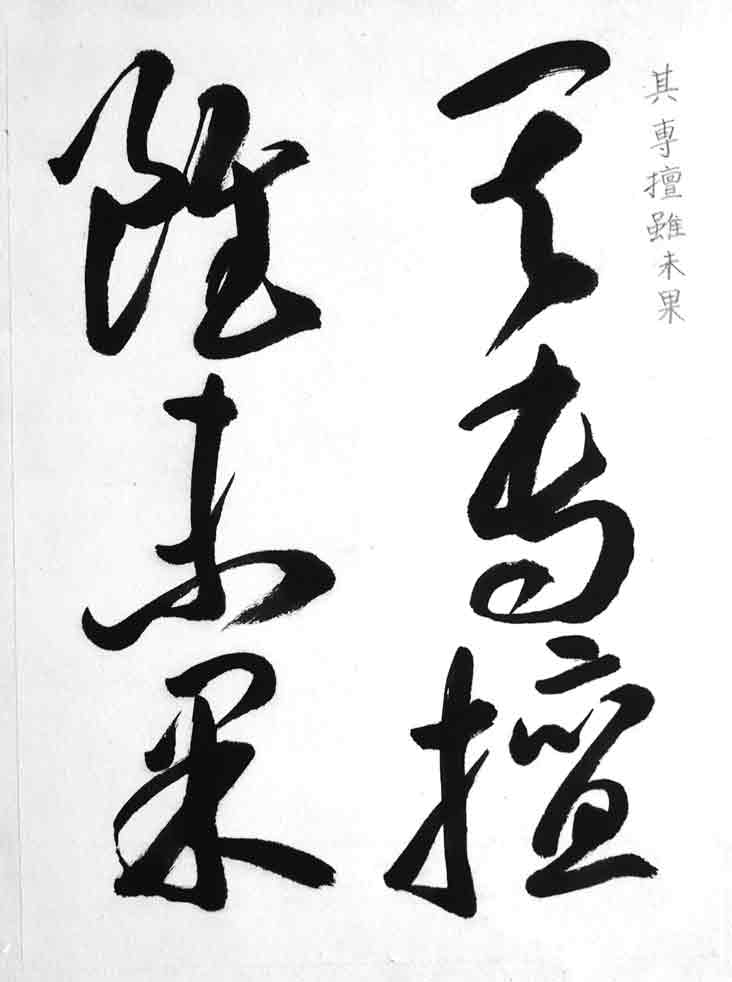 其專擅雖未果
其專擅
雖未果